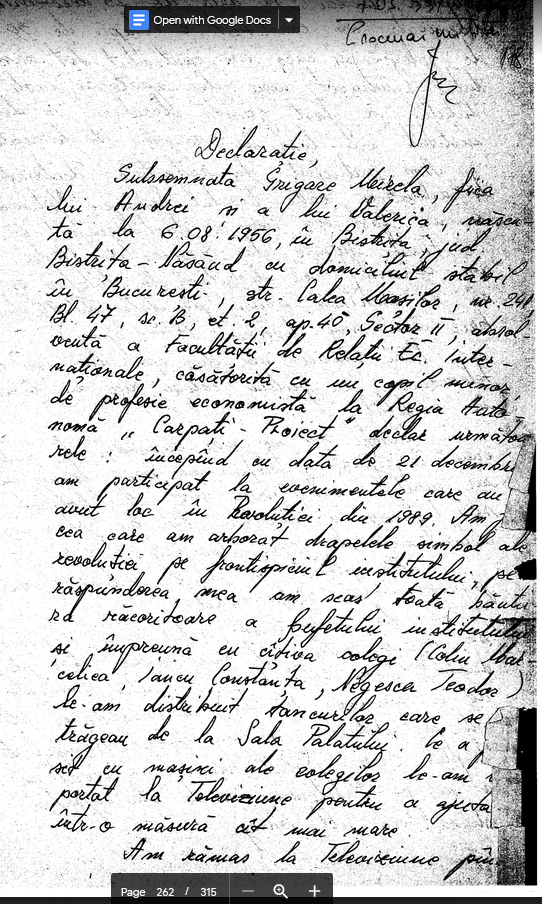 Open with Google Docs
Declarație,
Subsemnata Grigore Mirela, fiica
lui Andrei și a lui Valerica, născu-
tă la 6.08.1956, în Bistrița, jud
Bistrița-Năsăud cu domiciliul stabil
în București, str. Calea Moșilor, nr. 241,
Bl. 47, sc. B, et 2, ap. 40, Sector II, absol-
ventă a Facultății de Relații Ec. Inter-
naționale, căsătorită cu un copil minor,
de profesie economistă la Regia Auto-
nomă "Carpați-Proiect" declar următoa
rele: începînd cu data de 21 decembri
am participat la evenimentele care au
avut loc în Revoluției din 1989. Am
cea care am arborat drapelele simbol ale
revoluției pe frontispiciul institutului, pe
răspunderea mea am scos toată băutu
ra răcoritoare a bufetului institutului
și împreună cu cîțiva colegi (Colin Mar-
celica, Iancu Constanța, Negescu Teodor)
le-am distribuit tancurilor care se
trăgeau de la Sala Palatului. Pe a
cu mașini ale colegilor le-am
portat la Televiziune pentru a ajuta
într-o măsură cît mai mare.
Am rămas la Televiziune pîn
Page 262 / 315